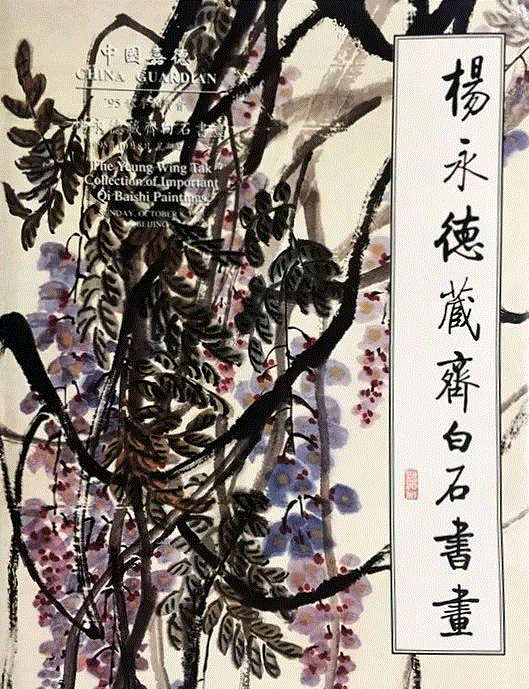 中國嘉德
CHINA GUARDIAN
The Yeung Wing Tak
Collection of Important
Qi Baishi Paintings
SUNDAY, OCTOBER 8,
BEIJING
楊永德藏齊白石書畫